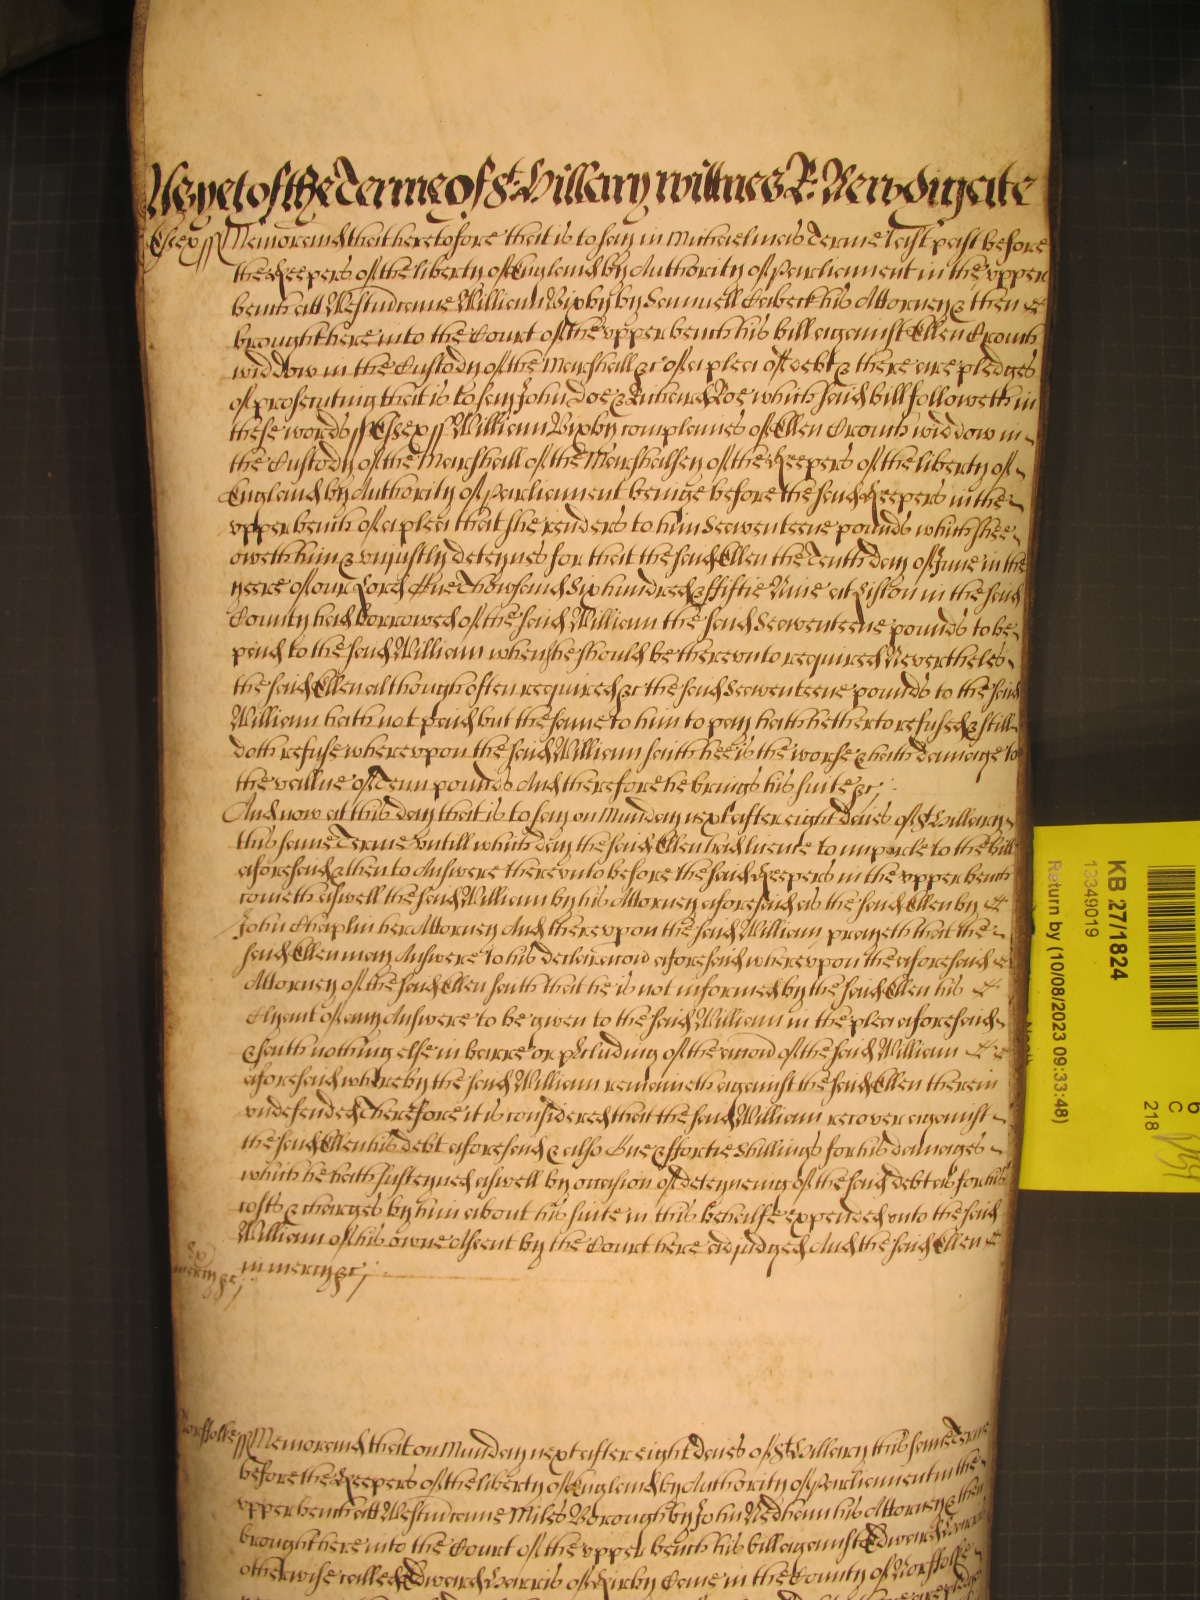 As yet of the Terme of St. Hillary wittnes R: Newdigate
Essex ss Memorand that heretofore that is to say in Michaelmas Terme last past before
the Keepers of the liberty of England by Authority of Parliament in the vpper
bench att Westm came William Bixby by Samuell his Attorney & then
brought here into the Court of the vpper bench his bill against Ellen Crouch
widdow in the Custody of the Marshall &c of a plea of debt & there are pledges
of prosecuting that is to say John Doe & Richard Roe which said bill followeth in
these words ss Essex ss William Bixby complaines of Ellen Crouch widdow in
the Custody of the Marshall of the Marshalsey of the Keepers of the liberty of
England by Authority of Parliament beinge before the said Keepers in the
vpper bench of a plea that she renders to him Seaventeene pounds which shee
oweth him & vnjustly deteynes for that the said Ellen the Tenth day of June in the
yeere of our Lord One Thowsand Six hundred & ffiftie Nine at in the said
County had borrowed of the said William the said Seaventeene pounds to be
paid to the said William when she should be therevnto required Neverthelès
the said Ellen although often required &c the said Seaventeene pounds to the said
William hath not paid but the same to him to pay hath hetherto refused & still
doth refuse wherevpon the said William saith hee is the worse & hath damage to
the vallue of Tenn pounds And therefore he brings his suite &c;
And now at this day that is to say on Munday next after eight daies of St Hillary
this same Terme vntill which day the said Ellen had licence to imparle to the bill
aforesaid & then to Answere therevnto before the said Keepers in the vpper bench
cometh aswell the said William by his Attorney aforesaid as the said Ellen by
John Chaplin her Attorney And therevpon the said William prayeth that the
said Ellen may Answere to his declaracion aforesaid wherevpon the aforesaid
Attorney of the said Ellen saith that he is not informed by the said Ellen his
Clyent of any Answere to be given to the said William in the plea aforesaid
& saith nothing else in barre or of the accion of the said William
aforesaid whereby the said William remaineth against the said Ellen therein
vndefended Therefore it is considered that the said William recover against
the said Ellen his debt aforesaid & also One & ffortie Shillings for his damages
which he hath susteyned aswell by occasion of deteyneing of the said debt as for his
costs & charges by him about his suite in this behalfe expended vnto the said
William of his owne Assent by the Court here adjudged And the said Ellen
in mercy &c;
mercy &c;
Norffolke ss Memorand that on Munday next after eight daies of St Hillary this same Terme
before the Keepers of the liberty of England by Authority of Parliament in the
vpper bench att Westm came Miles Borough by John Nedham his Attorney & then
brought here into the Court of the vpper bench his bill against Edward Harris
otherwise called Edward Harris of Kirby Cane in the County of Norffolke